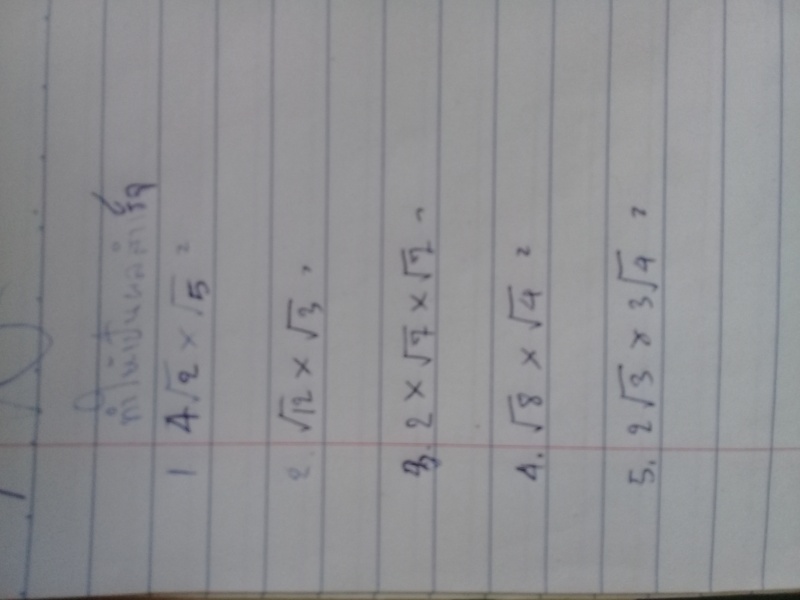 ทำให้เป็นผลสำเร็จ
1 4√2 × √5 =
2. √12 × √3 =
3. 2 × √7 × √7 =
4. √8 × √4 =
5. 2√3 × 3√4 =